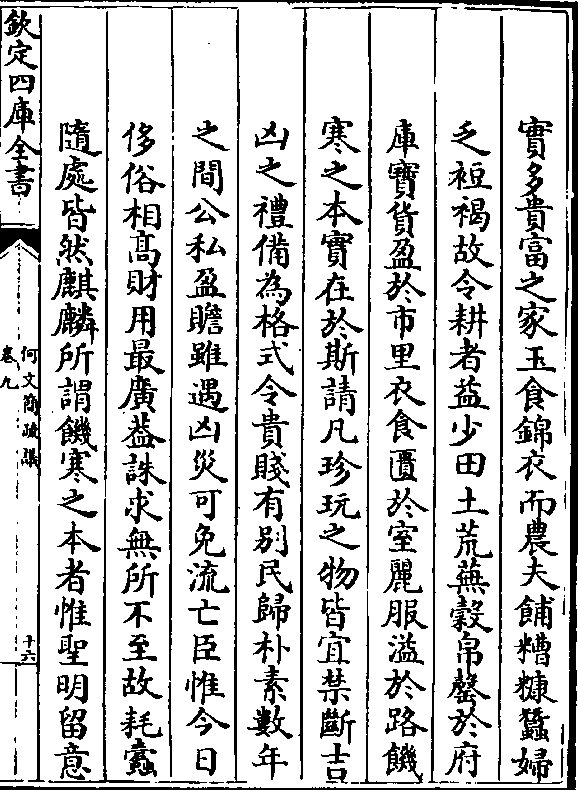 實多貴富之家玉食錦衣而農夫餔糟糠蠶婦
乏裋褐故令耕者益少田土荒蕪穀帛罄於府
庫寶貨盈於市里衣食匱於室麗服溢於路饑
寒之本實在於斯請凡珍玩之物皆宜禁斷吉
凶之禮備為格式令貴賤有别民歸朴素數年
之間公私盈贍雖遇凶災可免流亡臣惟今日
侈俗相髙財用最廣葢誅求無所不至故耗蠧
隨處皆然麒麟所謂饑寒之本者惟聖明留意
欽定四庫全書
何文簡疏議
卷九
十六